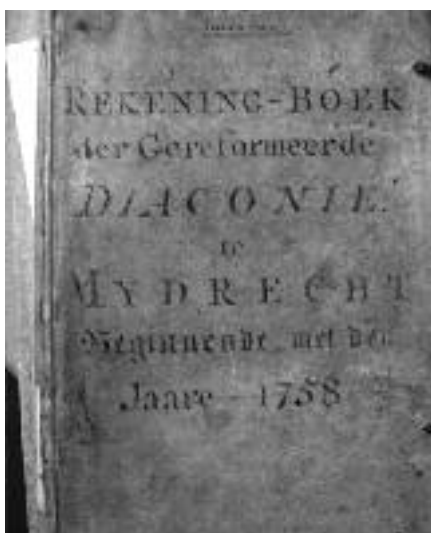 REKENING-BOEK
der Gereformeerde
DIACONIE
te
MYDRECHT
Beginnende met den
Jaare - 1758